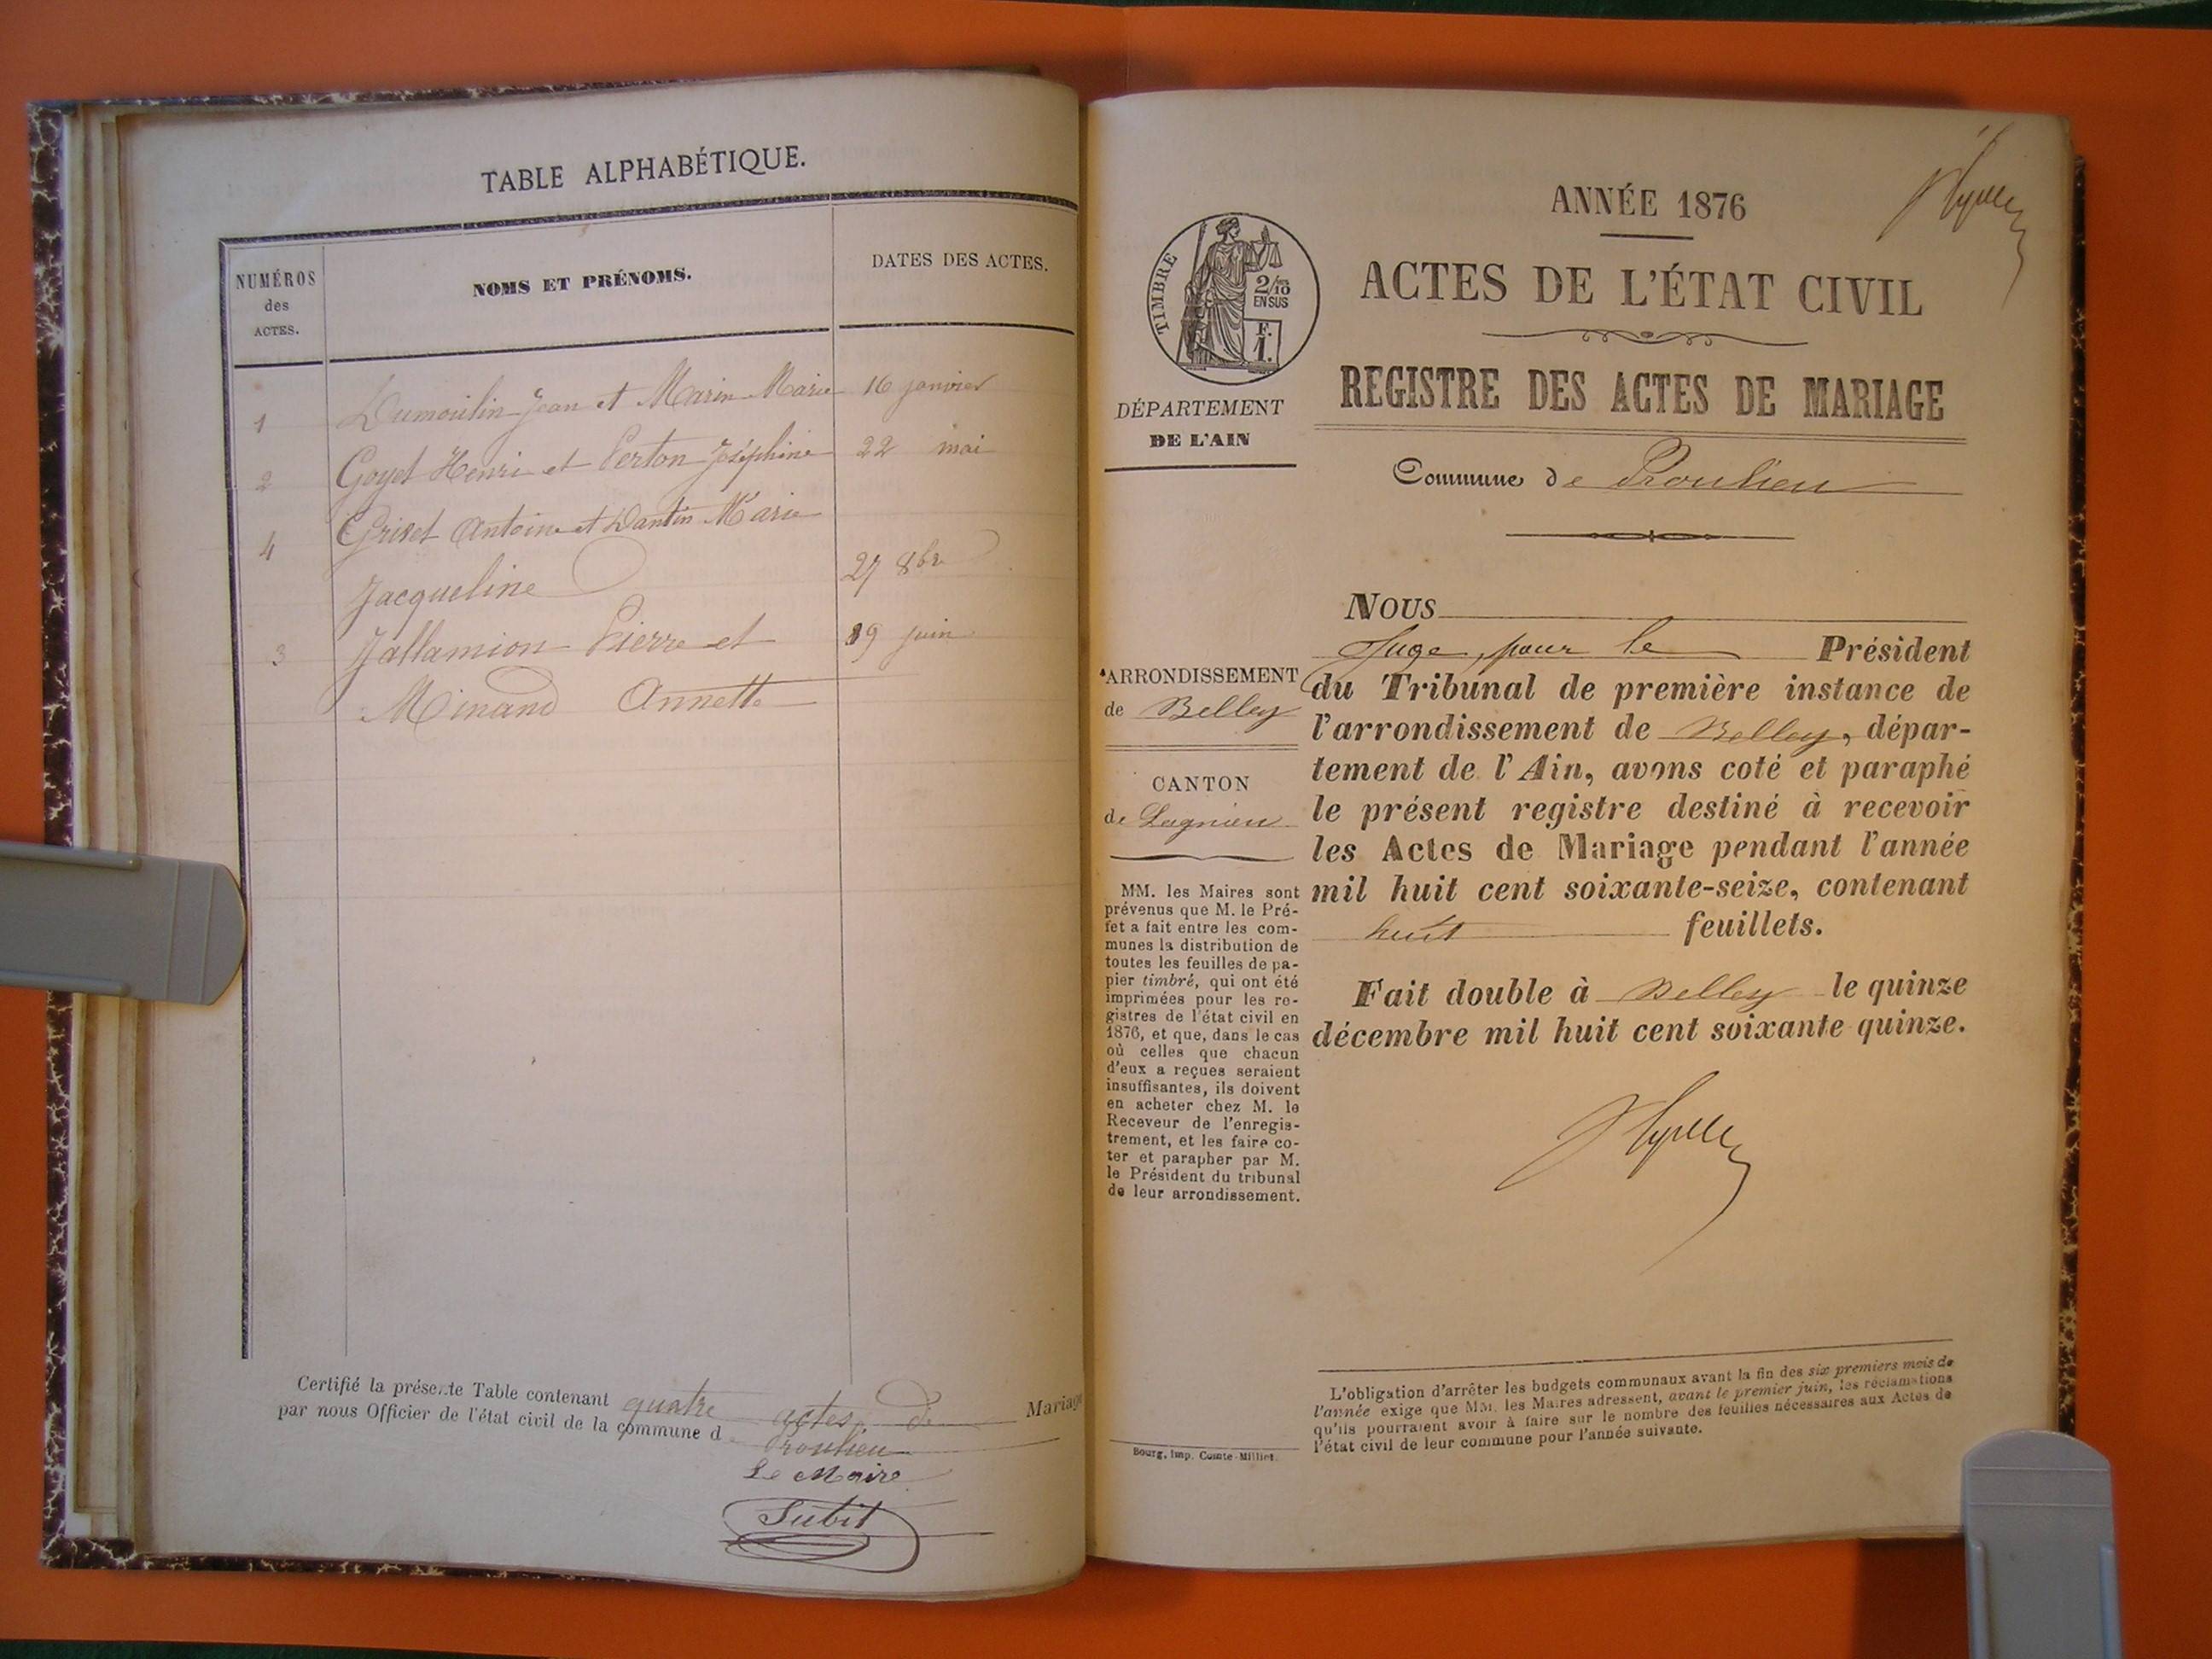 TABLE ALPHABÉTIQUE.
NUMÉROS
des
ACTES.
NOMS ET PRÉNOMS.
DATES DES ACTES.
1 Dumoulin Jean et Marin Marie 16 janvier
2 Goyet Henri et Perton Joséphine 22 mai
4 Griset Antoine et Dantin Marie
Jacqueline 27 8bre
3 Jallamion Pierre et 19 juin
Minand Annette
Certifié la présente Table contenant quatre actes de Mariage
par nous Officier de l'état civil de la commune d Proulieu
Le Maire
Subit
ANNÉE 1876
TIMBRE
2/10
EN SUS
F.
1.
ACTES DE L'ÉTAT CIVIL
REGISTRE DES ACTES DE MARIAGE
DÉPARTEMENT
DE L'AIN
Commune de Proulieu
ARRONDISSEMENT
de Belley
CANTON
de Lagnieu
MM. les Maires sont
prévenus que M. le Pré-
fet a fait entre les com-
munes la distribution de
toutes les feuilles de pa-
pier timbré, qui ont été
imprimées pour les re-
gistres de l'état civil en
1876, et que, dans le cas
où celles que chacun
d'eux a reçues seraient
insuffisantes, ils doivent
en acheter chez M. le
Receveur de l'enregis-
trement, et les faire co-
ter et parapher par M.
le Président du tribunal
de leur arrondissement.
Bourg, Imp. Comte-Milliet.
NOUS
Juge, pour le Président
du Tribunal de première instance de
l'arrondissement de Belley, dépar-
tement de l'Ain, avons coté et paraphé
le présent registre destiné à recevoir
les Actes de Mariage pendant l'année
mil huit cent soixante-seize, contenant
huit feuillets.
Fait double à Belley le quinze
décembre mil huit cent soixante quinze.
L'obligation d'arrêter les budgets communaux avant la fin des six premiers mois de
l'année exige que MM. les Maires adressent, avant le premier juin, les réclamations
qu'ils pourraient avoir à faire sur le nombre des feuilles nécessaires aux Actes de
l'état civil de leur commune pour l'année suivante.